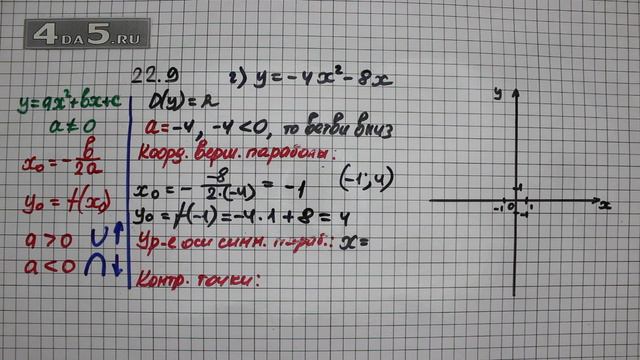 4DA5.RU
22.9 г) y = -4x² - 8x
y=ax²+bx+c
a≠0
x₀ = - b/2a
y₀ = f(x₀)
a > 0 ∪ ↑
a < 0 ∩ ↓
D(y) = R
a = -4, -4 < 0, то ветви вниз
Коорд. верш. параболы:
x₀ = - -8/2·(-4) = -1 (-1; 4)
y₀ = f(-1) = -4·1 + 8 = 4
Ур-е оси симм. параб.: x =
Контр. точки:
y
1
-1 0 1 x
-1